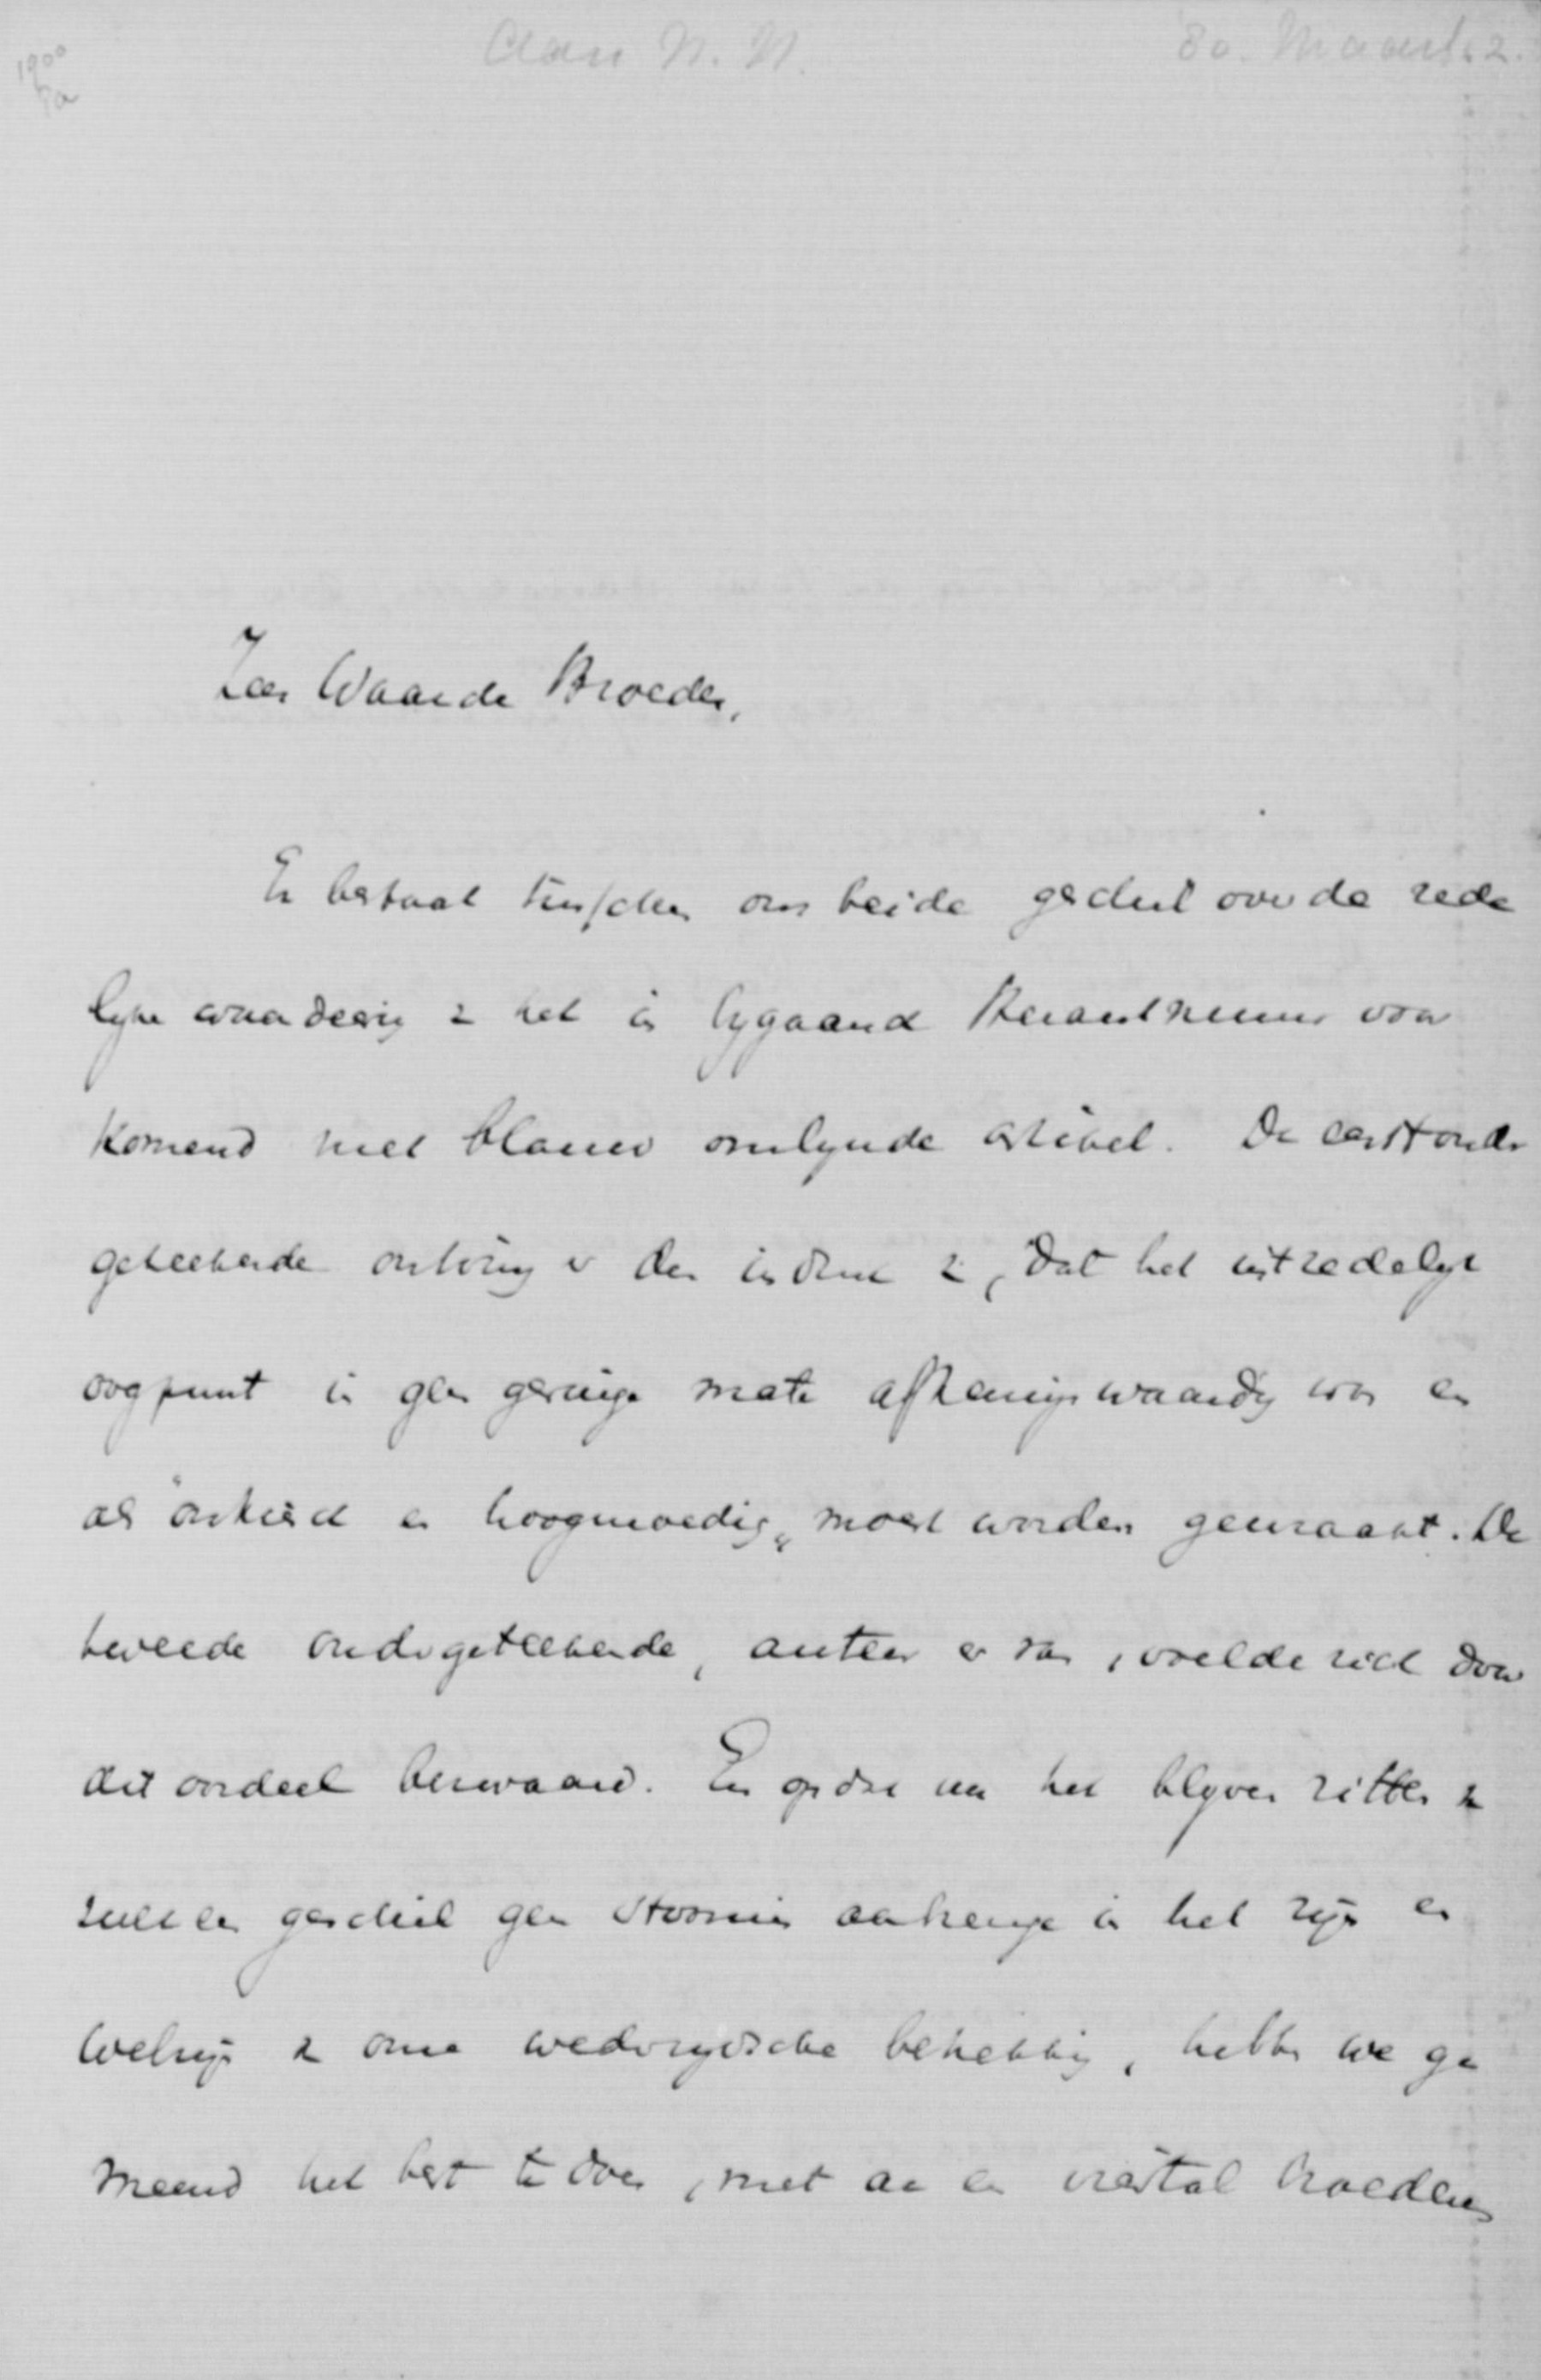 Aan N. N. 30. Maart. 2.
1900
Zeer Waarde Broeder,
Er bestaat tusschen ons beide geschil over de rede
lijke waardering v het in bijgaand Kerautnummer voor
komend met blauw omlijnde artikel. De eerstonder
geteekende ontving v den indruk, dat het uit zedelijk
oogpunt in geen geringe mate afkeuringswaardig was en
als "onkiesch en hoogmoedig" moest worden gewraakt. De
tweede ondergeteekende, auteur er van, voelde zich door
dit oordeel bezwaard. En opdat nu het blijven zitten v
zulk een geschil geen stoornis aanbrenge in het zijn en
welzijn v onze wederzijdsche betrekking, hebben we ge
meend het best te doen, met aan een viertal broeders